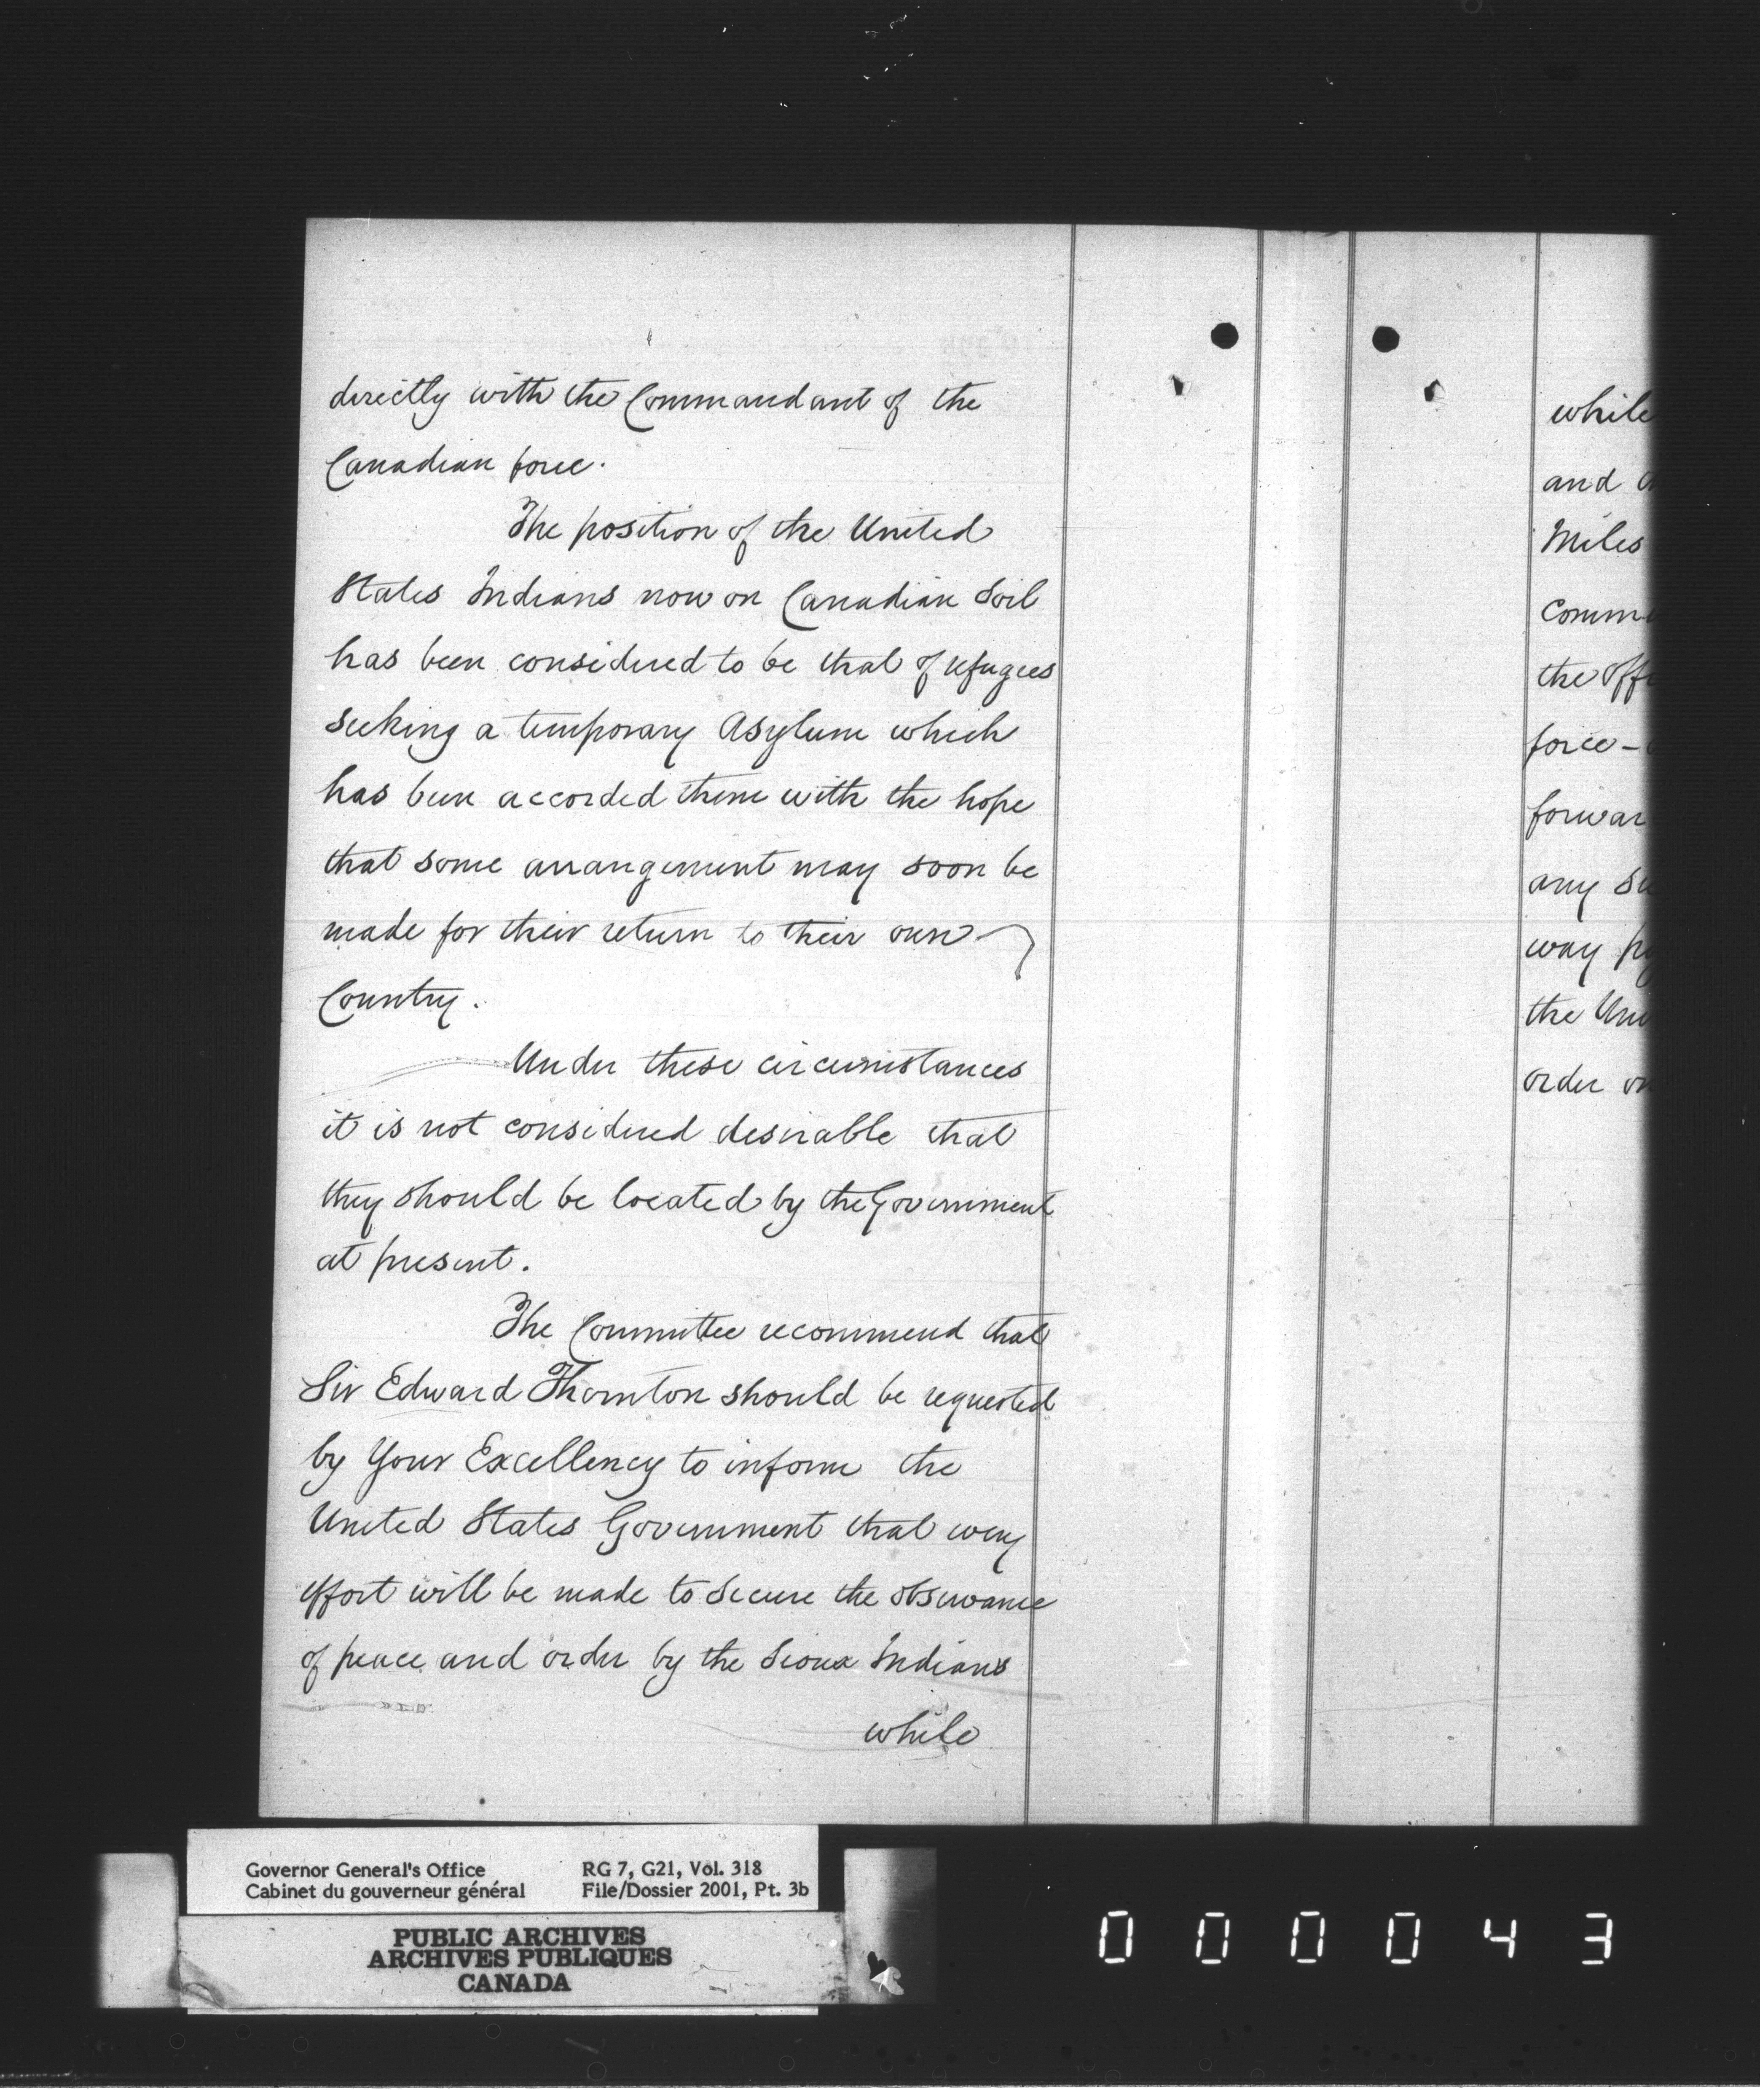 directly with the Commandant of the
Canadian force.
The position of the United
States Indians now on Canadian Soil
has been considered to be that of refugees
seeking a temporary Asylum which
has been accorded them with the hope
that some arrangement may soon be
made for their return to their own
Country.
Under these circumstances
it is not considered desirable that
they should be located by the Government
at present.
The Committee recommend that
Sir Edward Thornton should be requested
by Your Excellency to inform the
United States Government that every
effort will be made to secure the observance
of peace and order by the Sioux Indians
while
while
and
Miles
Comm
the off
force -
forwar
any su
way
the Uni
order on
Governor General's Office
Cabinet du gouverneur général
RG 7, G21, Vol. 318
File/Dossier 2001, Pt. 3b
PUBLIC ARCHIVES
ARCHIVES PUBLIQUES
CANADA
000043